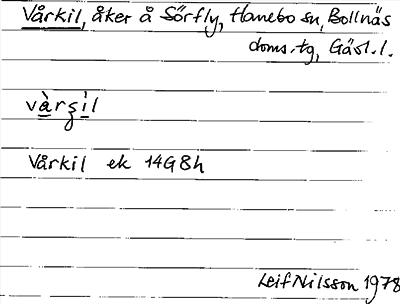 Vårkil, åker å Sörfly, Hanebo sn, Bollnäs
doms.tg, Gävl.l.
vàrʂìl
Vårkil ek 14G8h
Leif Nilsson 1978